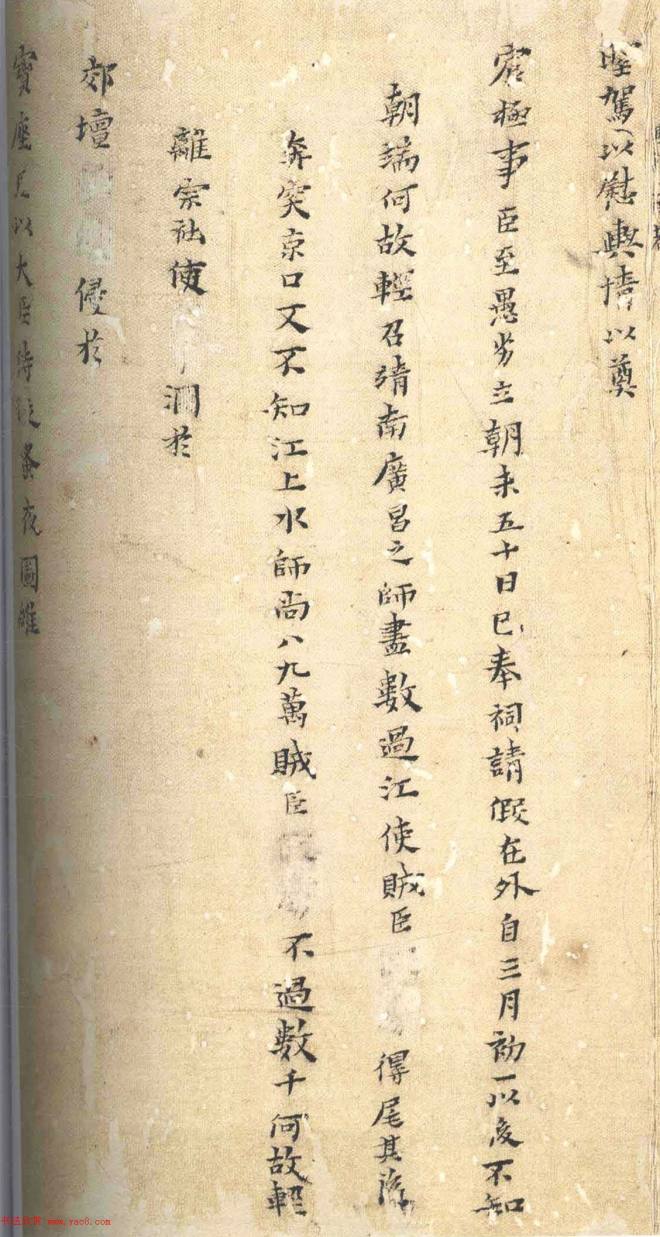 聖駕以慰輿情以奠
宸極事臣至愚劣立朝未五十日已奉祠請假在外自三月初一以後不知
朝端何故輕召靖南廣昌之師盡數過江使賊臣得尾其後
奔突京口又不知江上水師尚八九萬賊臣不過數千何故輕
離宗社使潤於
郊壇侵於
寶座足以大臣夜圖維
www.yac8.com